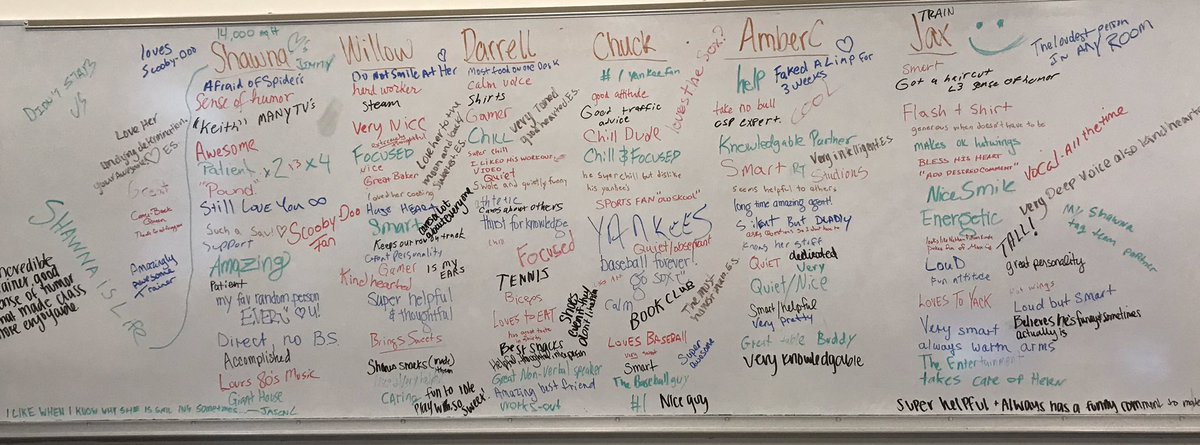 DIDN'T STAB
JS
loves
Scooby-Doo
Love Her
undying determination.
Great
Come-Back
Queen
Amazingly
Awesome
Trainer
SHAWNA is Life
Incredible
trainer good
sense of humor
that made class
more enjoyable
14,000 sq ft
Shawna
Jimmy
Afraid of Spider's
Sense of humor
"Keith" MANY TV's
Awesome
Patient x 2 x 3 x 4
"Pound"
Still Love You ∞
Such a Sav! ♡
Support
Scooby Doo
Fan
Amazing
Patient
my fav random person
EVER! ♡ u!
Direct no B.S.
Accomplished
Loves 80's Music
Giant House
I LIKE WHEN I KNOW WHY SHE IS
Willow
Do Not Smile At Her
hard worker
Steam
Very Nice
Focused
nice
Great Baker
loved her cooking
Huge HEART
Smart
Keeps our row on track
Great Personality
Gamer
is my
EARS
Kind hearted
Super helpful
& thoughtful
Brings Sweets
Shares snacks (made them)
Caring
fun to idle
play with. so sweet!
Love her to the
moon and back!
Cares a lot
about everyone
Darrell
Most food on one Desk
Calm voice
Shirts
Gamer
Chill
Super chill
I LIKED HIS WORKOUT
VIDEO
Quiet
Swole and quietly funny
athletic
Cares about others
thirst for knowledge
Focused
TENNIS
Biceps
Loves to EAT
has great taste
in shirts
Best Snacks
Great Non-Verbal speaker
Amazing Just Friend
works-out
very toned
good hearted E.S.
Chuck
#1 yankee fan
good attitude
Good traffic
advice
Chill Dude
Chill & Focused
he super chill but dislike
his yankees
SPORTS FAN "OLD SKOOL"
YANKEES
Quiet/observant
baseball forever!
"go sox"
Calm
BOOK CLUB
LOVES BASEBALL
very smart
Smart
The Baseball guy
#1
Nice guy
loves the Sox?
The most
honest man E.S.
Super
awesome
Amber C
help
Faked A Limp For
3 weeks
COOL
take no bull
CSP EXPERT.
Knowledgable Partner
Smart
Very intelligent E.S.
Studious
seems helpful to others
long time amazing agent!
Silent But DEADLY
knows her stuff
Quiet
dedicated
Very
Quiet/Nice
Smart/helpful
Very pretty
Great table Buddy
very knowledgable
TRAIN
Jax
The loudest person
IN ANY ROOM
Smart
Got a haircut
L3 sense of humor
Flash t Shirt
generous when doesn't have to be
makes ok hotwings
BLESS HIS HEART
"ADD DESIRED COMMENT"
VOCAL-All the time
Very Deep Voice also kind heart
Nice Smile
Energetic
TALL!
Mr. Shawna
tag team
partner
LOUD
great personality
Fun attitude
hot wings
LOVES TO YACK
Loud but smart
Believes he's funny & sometimes
actually is
Very smart
always warm arms
The Entertainment
takes care of Helen
Super helpful + Always has a funny comment to make